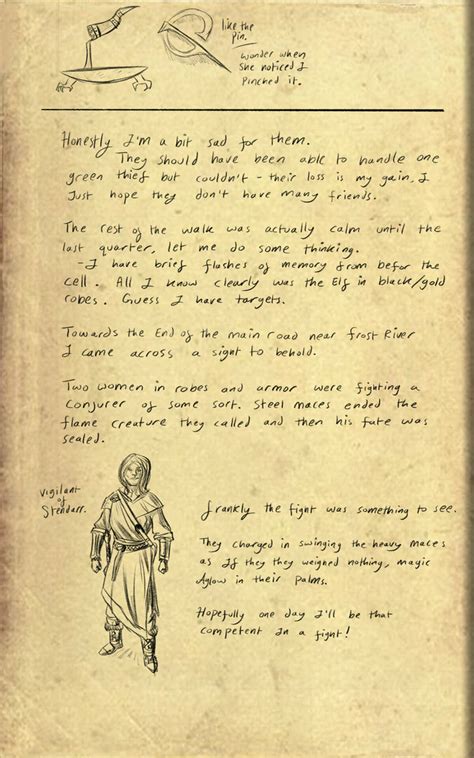 like the
pin.
wonder when
she noticed I
pinched it.
Honestly I'm a bit sad for them.
They should have been able to handle one
green thief but couldn't - their loss is my gain, I
Just hope they don't have many friends.
The rest of the walk was actually calm until the
last quarter, let me do some thinking.
-I have brief flashes of memory from befor the
cell. All I know clearly was the Elf in black/gold
robes. Guess I have targets.
Towards the End of the main road near frost River
I came across a sight to behold.
Two women in robes and armor were fighting a
Conjurer of some sort. Steel maces ended the
flame creature they called and then his fate was
sealed.
Vigilant
of
Stendarr.
frankly the fight was something to see.
They charged in swinging the heavy maces
as If they they weighed nothing, magic
Aglow in their palms.
Hopefully one day I'll be that
competent In a fight!